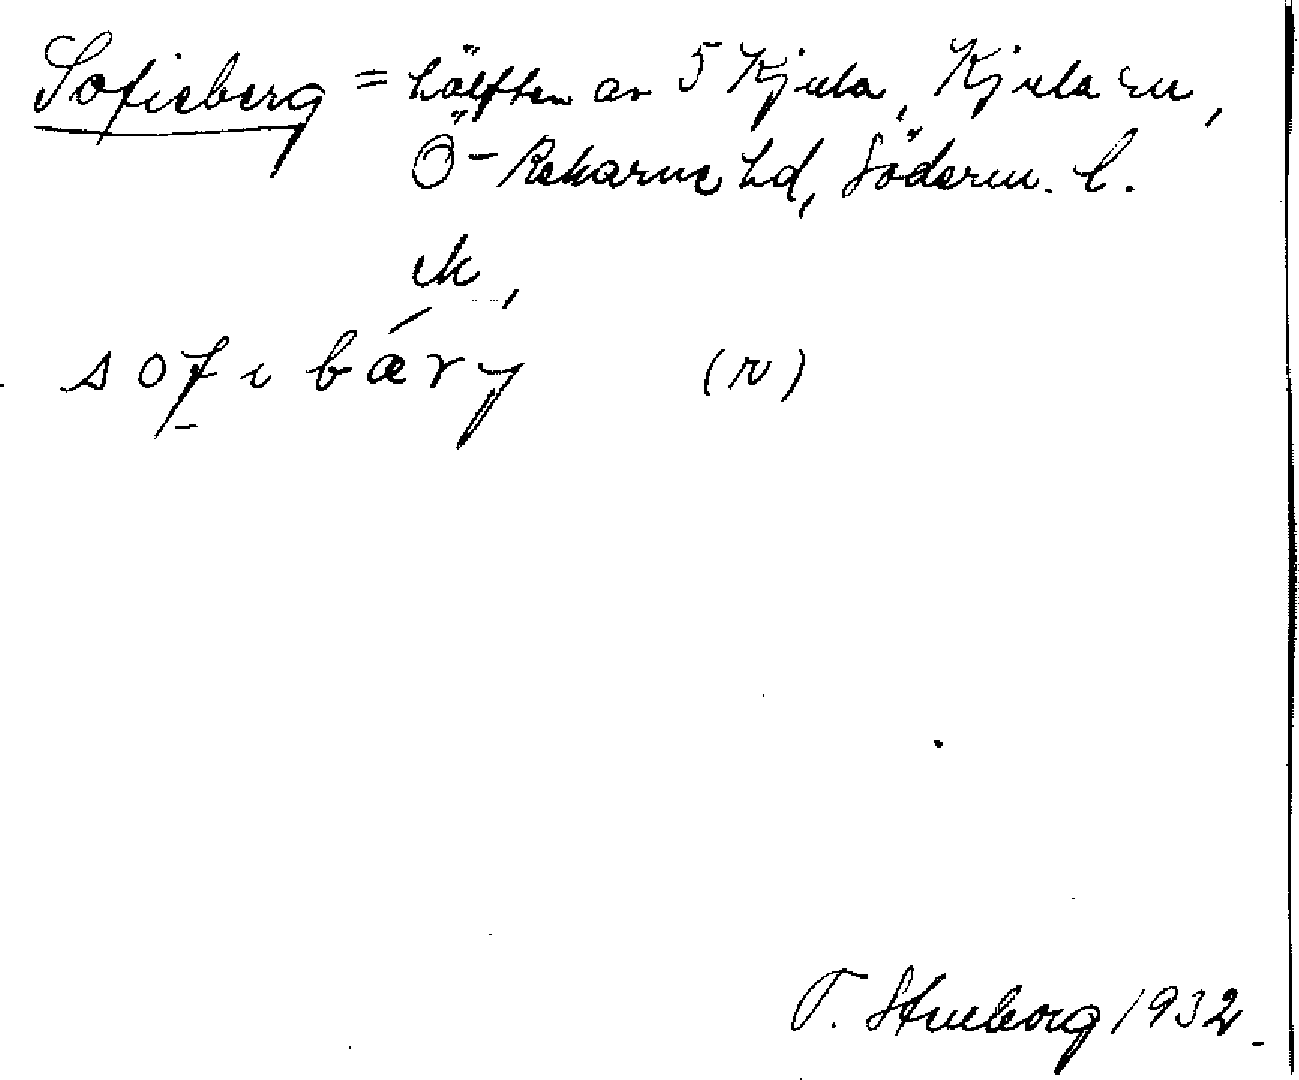 Sofieberg = hälften av 5 Kjula, Kjula sn,
Ö-Rekarne hd, Söderm. l.
sofιbǽrγ (r)
T. Streborg 1932